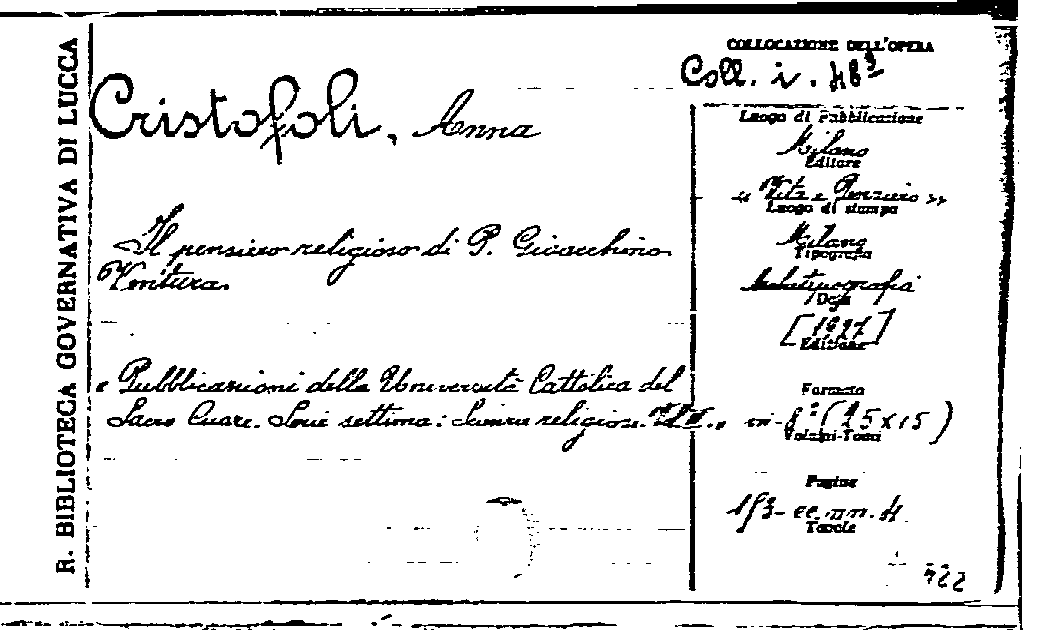 R. BIBLIOTECA GOVERNATIVA DI LUCCA
Cristofoli, Anna
Il pensiero religioso di P. Gioacchino
Ventura.
« Pubblicazioni della Università Cattolica del
Sacro Cuore. Serie settima: Scienze religiose.
COLLOCAZIONE DELL'OPERA
Coll. i. 48
Luogo di Pubblicazione
Milano
Editore
« Vita e Pensiero »
Luogo di stampa
Milano
Tipografia
Data
[1927]
Edizione
Formato
in-8° (25x15)
Volumi-Tomi
Pagine
153-cc.nn.4.
Tavole
422